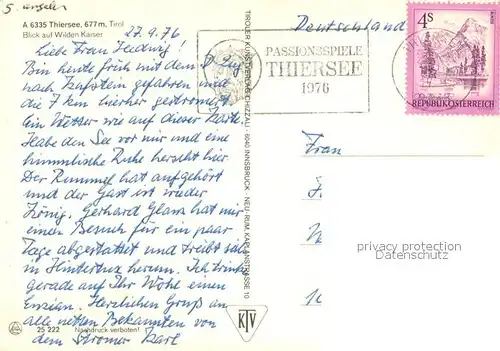 5. angeln
A 6335 Thiersee, 677 m, Tirol
Blick auf Wilden Kaiser
27.9.76
Liebe Frau Hedwig!
Bin heute früh mit dem Zug
nach Kufstein gefahren und
die 7 km hierher gestromert.
Ein Wetter wie auf dieser Karte.
Habe den See vor mir und eine
himmlische Ruhe herrscht hier.
Der Rummel hat aufgehört
und der Gast ist wieder
König. Gerhard Glass hat mir
einen Besuch für ein paar
Tage abgestattet und treibt sich
in Hintertux herum. Ich trinke
gerade auf Ihr Wohl einen
Enzian. Herzlichen Gruß an
alle netten Bekannten von
dem Stromer Karl
25 222 Nachdruck verboten!
TIROLER KUNSTVERLAG CHIZZALI · 6040 INNSBRUCK - NEU-RUM, KAPLANSTRASSE 10
KTV
Deutschland
PASSIONSSPIELE
THIERSEE
1976
4S
REPUBLIK ÖSTERREICH
Frau
privacy protection
Datenschutz